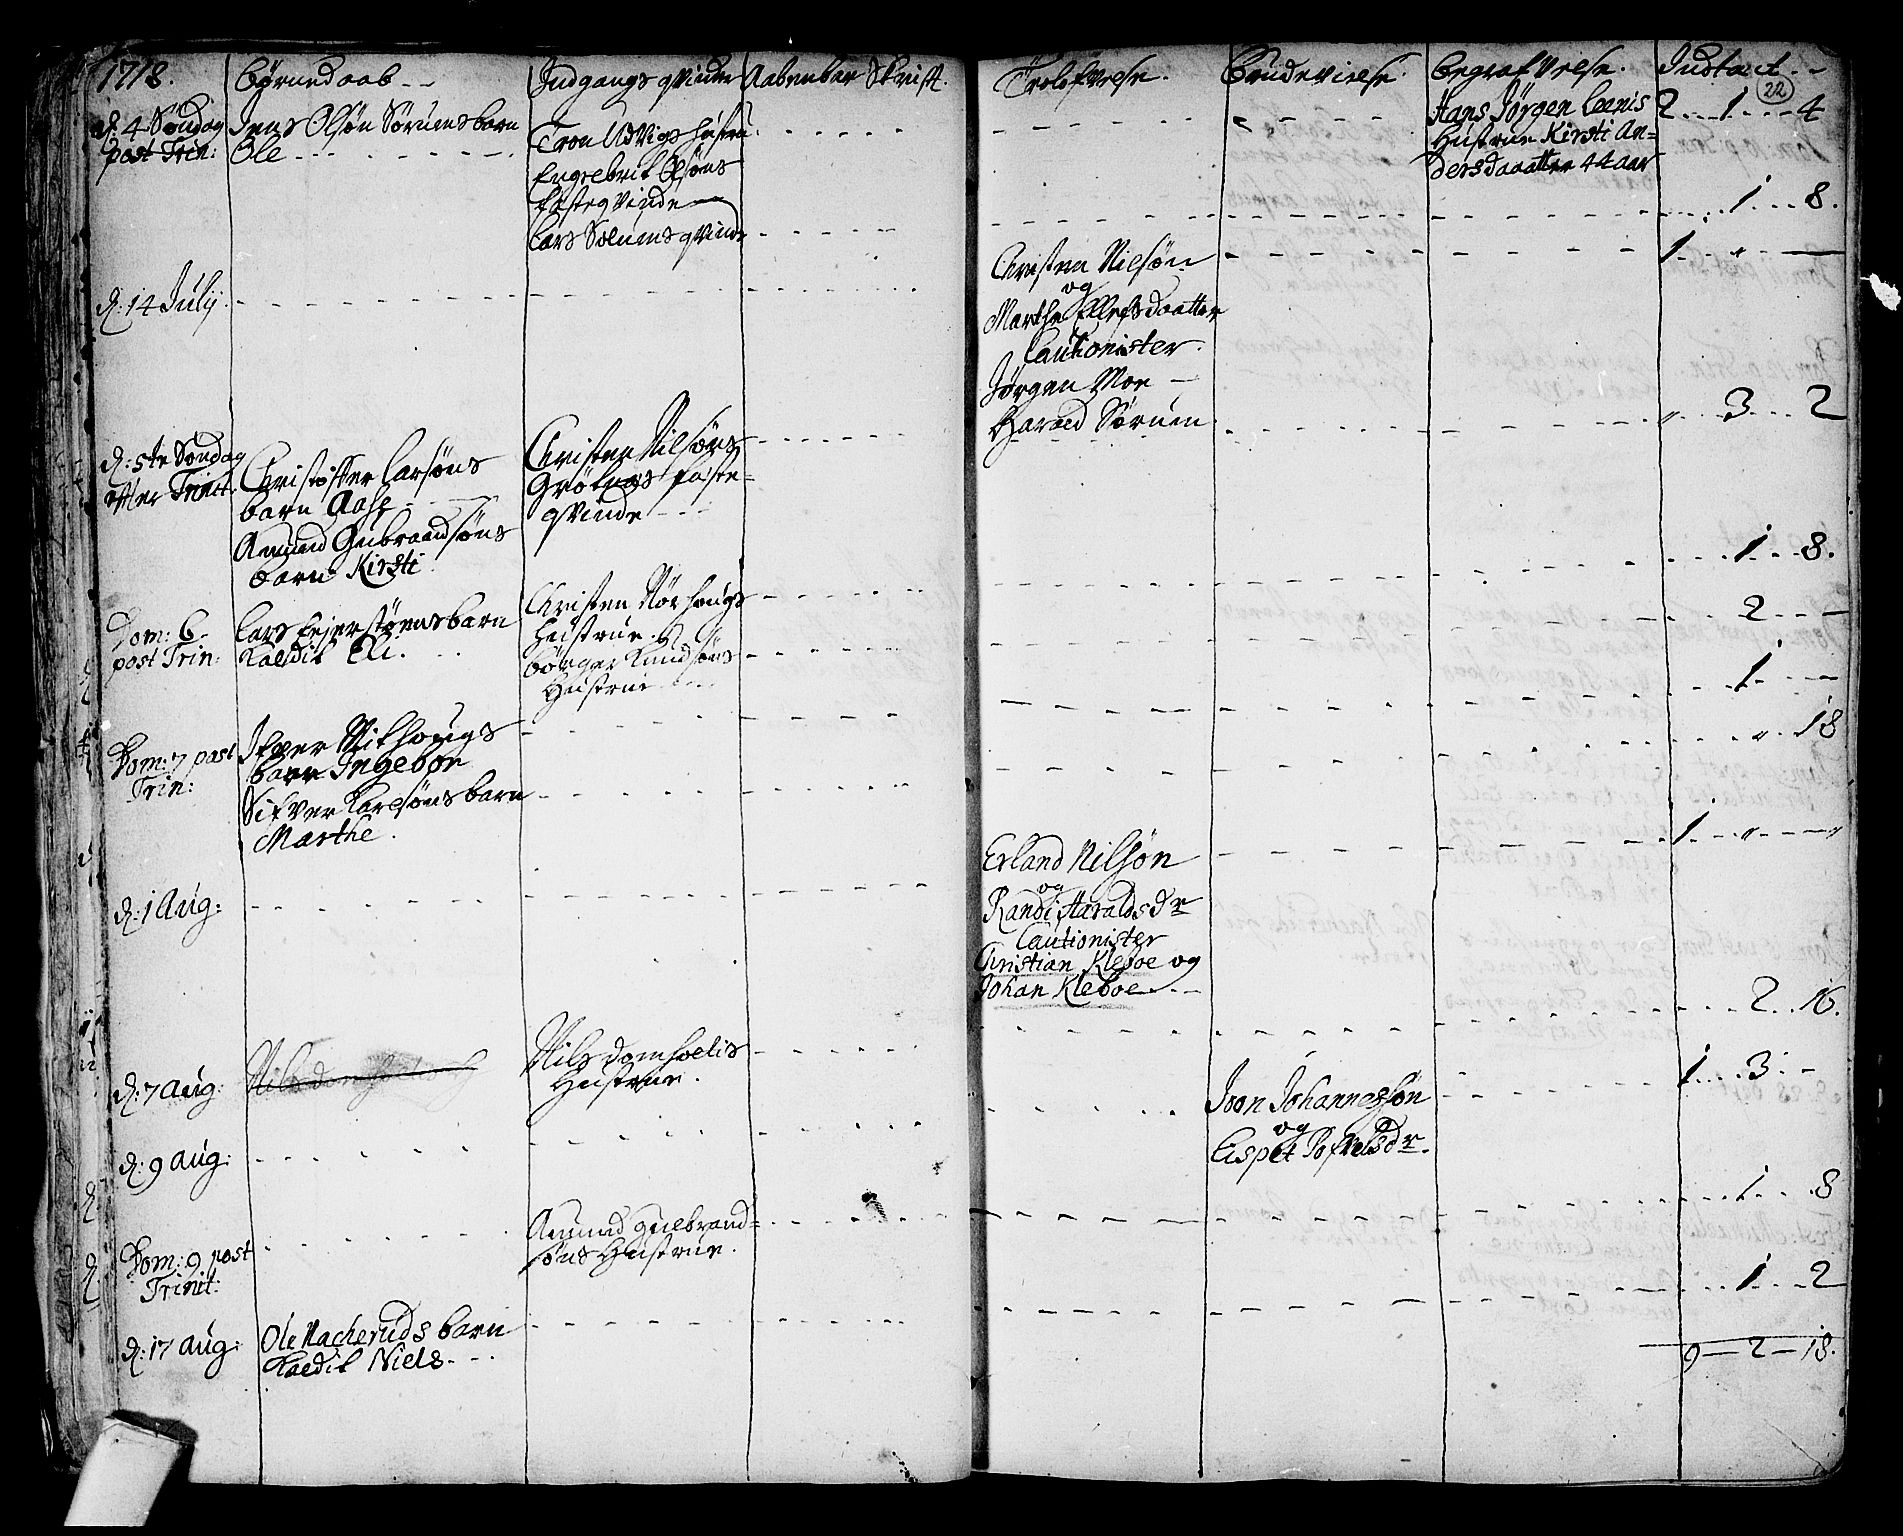 1718.
Børnedaab
Indgangs qvinder
Aabenbar Skrift.
Trolofvelse.
Brudevielse.
Begrafvelse.
Indtact
22
d: 4 Søndag
post Trin:
Jens Olsøn Søruens barn
Ole
Tron Udvigs hustru.
Engebrit Olsøns
fæsteqvinde
Lars Solums qvinde
Hans Jørgen Leenis
Hustrue Kirsti An=
dersdaaatter 44 aar
2 1 4
1 8.
d: 14 Julij.
Christen Nilsøn
og
Marthe Ellefsdaatter
Cautionister.
Jørgen Moe
Harald Søruen
1 „ —
3 2
d: 5te Søndag
efter Trinit.
Christoffer Larsøns
barn Aase
Amund Gulbrandsøns
barn Kirsti
Christen Nilsøns
Grøtnes fæste=
qvinde
1 8.
Dom: 6
post Trin:
Lars Eejerstøens barn
Kaldit Eli.
Christen Nørhougs
Hustrue.
Børger Knudsøns
Hustrue
2 —
1 —
Dom: 7 post
Trin:
Ifver Nithougs
barn Ingebor
Sifver Karlsøns barn
Marthe.
„ 18
1 „ „
d: 1 Aug:
Erland Nilsøn
og
Randi Haraldsdr
Cautionister
Christian Kleboe og
Johan Kleboe
2 16.
d: 7 Aug:
Nils domhoelis
Nils domhoelis
Hustrue.
1 3 -
d: 9 Aug:
Joon Johannessøn
og
Eispet Pofvelsdr.
1 8
Dom: 9 post
Trinit:
Amund Gulbrand=
søns Hustrue.
1 2
d: 17 Aug:
Ole Nacheruds barn
Kaldit Niels
9 — 2 — 18.